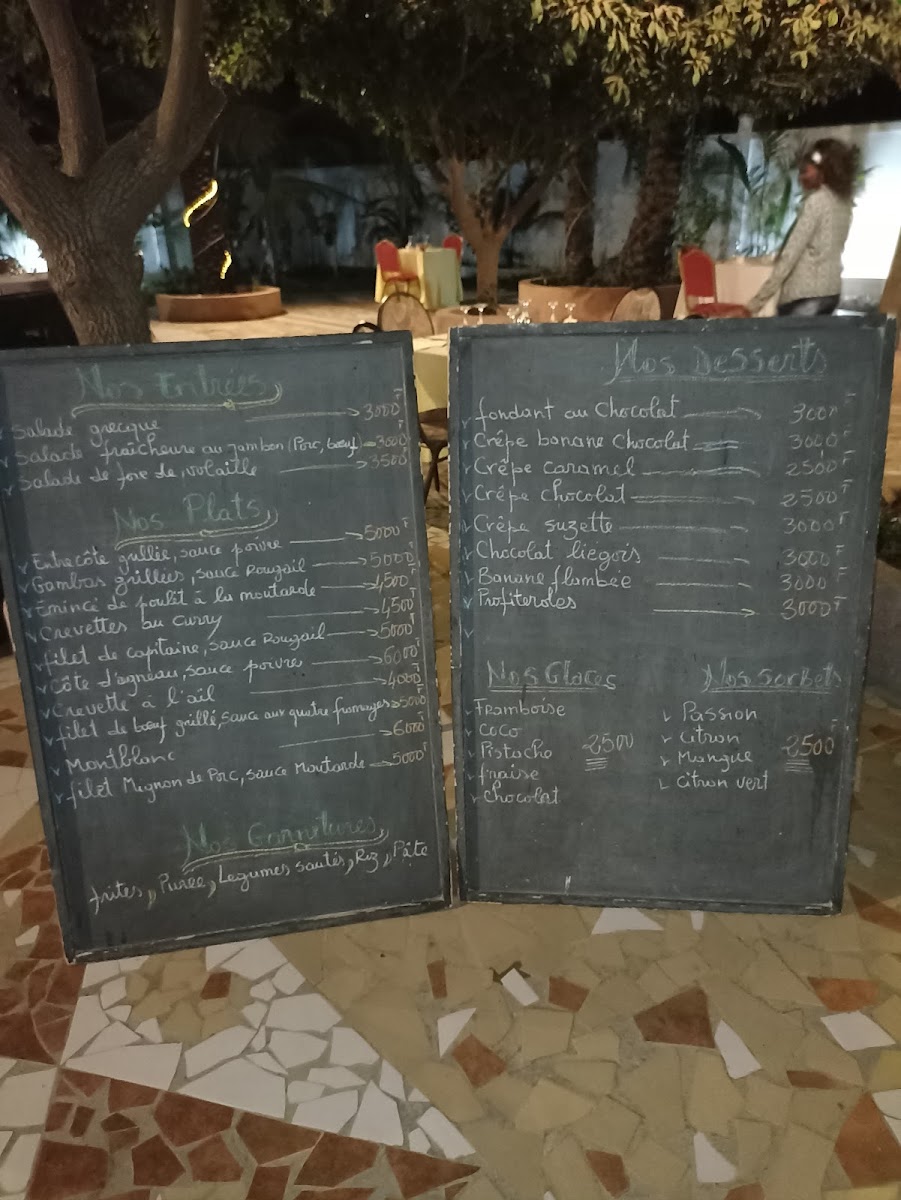 Nos Entrées
Salade grecque 3000F
Salade fraîcheure au jambon (Porc, bœuf) 3000F
Salade de foie de volaille 3500F
Nos Plats
Entrecôte grillée, sauce poivre 5000F
Gambas grillées, sauce Rougail 5000
Emincé de poulet à la moutarde 4500F
Crevettes au curry 4500
filet de capitaine, sauce Rougail 5000F
Côte d'agneau, sauce poivre 6000F
Crevette à l'ail 4000F
filet de bœuf grillé, sauce aux quatre fromages 5500F
Montblanc 6000F
filet Mignon de Porc, sauce Moutarde 5000F
Nos Garnitures
frites, Purée, Legumes sautés, Riz, Pâte
Nos Desserts
fondant au Chocolat 3000F
Crêpe banane Chocolat 3000F
Crêpe caramel 2500F
Crêpe chocolat 2500F
Crêpe suzette 3000F
Chocolat liegois 3000F
Banane flambée 3000F
Profiteroles 3000F
Nos Glaces
Framboise
Coco
Pistache 2500
fraise
Chocolat
Nos Sorbets
Passion
Citron
Mangue 2500F
Citron vert